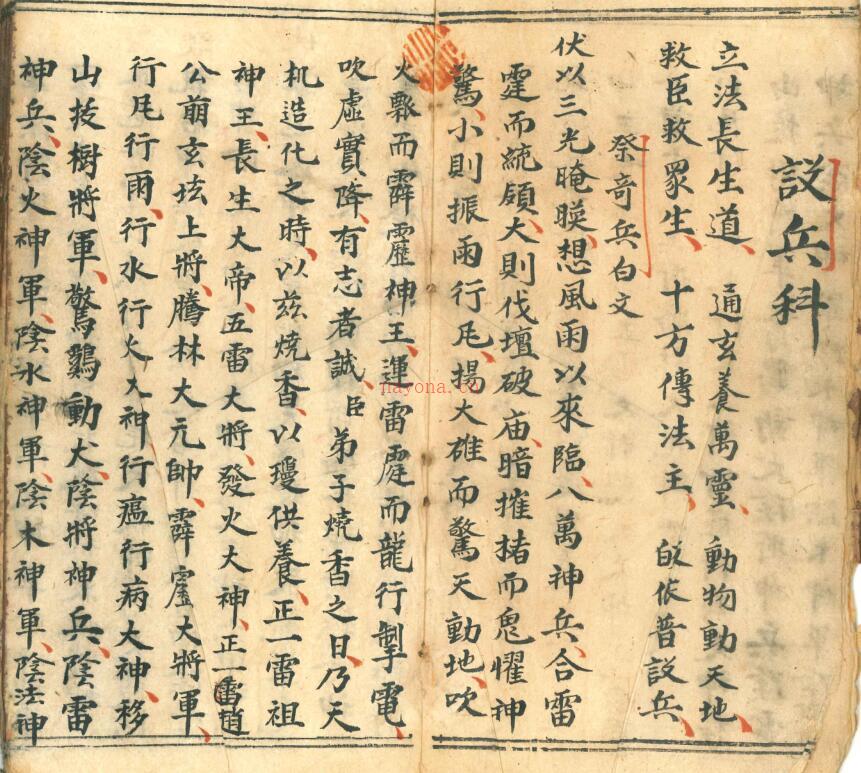 設兵科
立法長生道、通玄養萬靈、動物動天地、
救臣救眾生、十方傳法主、皈依普設兵、
祭奇兵白文
伏以三光晻暎、想風雨以來臨、八萬神兵、合雷
霆而統領、大則伐壇破庙、暗摧 而鬼懼神
驚、小則振雨行凡、揚大碓而驚天動地、吹
火 而霹靂神王、運雷霆而龍行掣電、
吹虛實降、有志者誠、臣弟子燒香之日、乃天
机造化之時、以兹燒香、以瓊供養、正一雷祖
神王、長生大帝、五雷大將、發火大神、正一雷道
公前玄坛上將、騰林大元帥、霹 大將軍、
行凡行雨、行水行火大神、行瘟行病大神、移
山技樹將軍、驚鷄動犬、陰將神兵、陰雷
神兵、陰火神軍、陰水神軍、陰木神軍、陰法神
nayona.cn